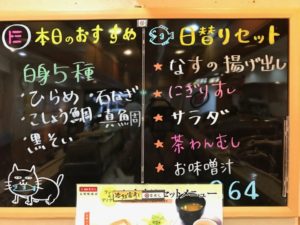 本日のおすすめ
白身5種
・ひらめ ・石なぎ
・こしょう鯛 ・真鯛
・黒そい
日替りセット
★なすの揚げ出し
★にぎりすし
★サラダ
★茶わんむし
★お味噌汁
864
セットメニュー